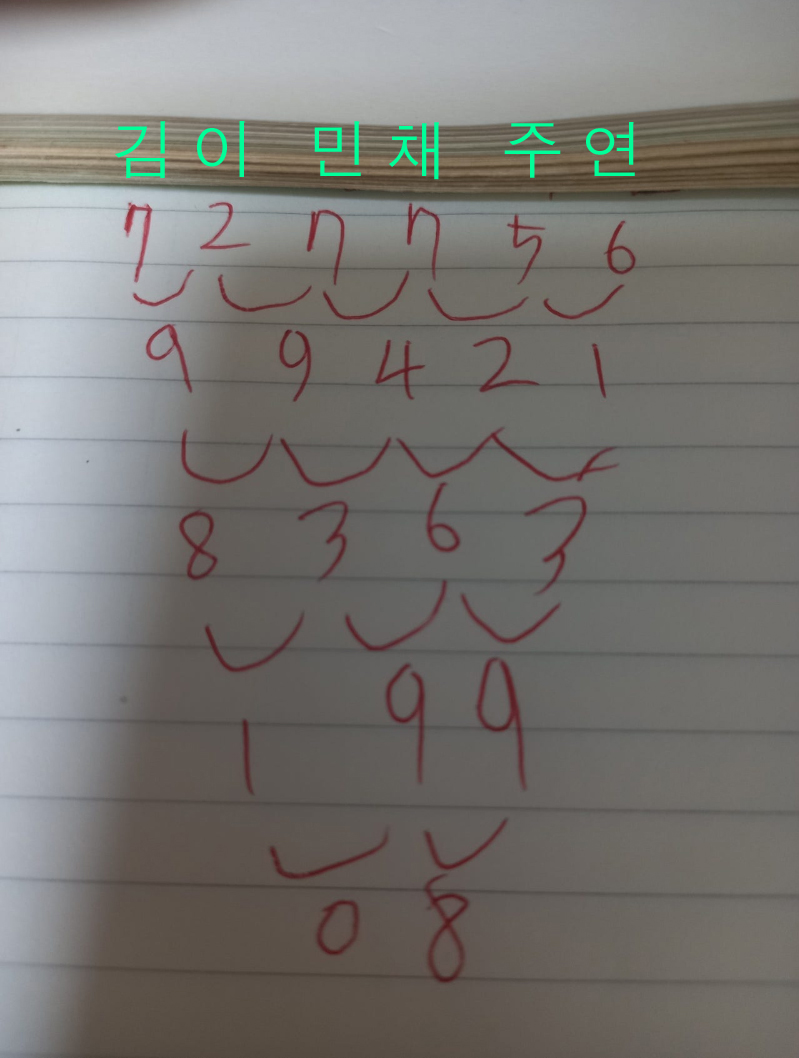 김 이 민 채 주 연
7 2 7 7 5 6
9 9 4 2 1
8 3 6 3
1 9 9
0 8